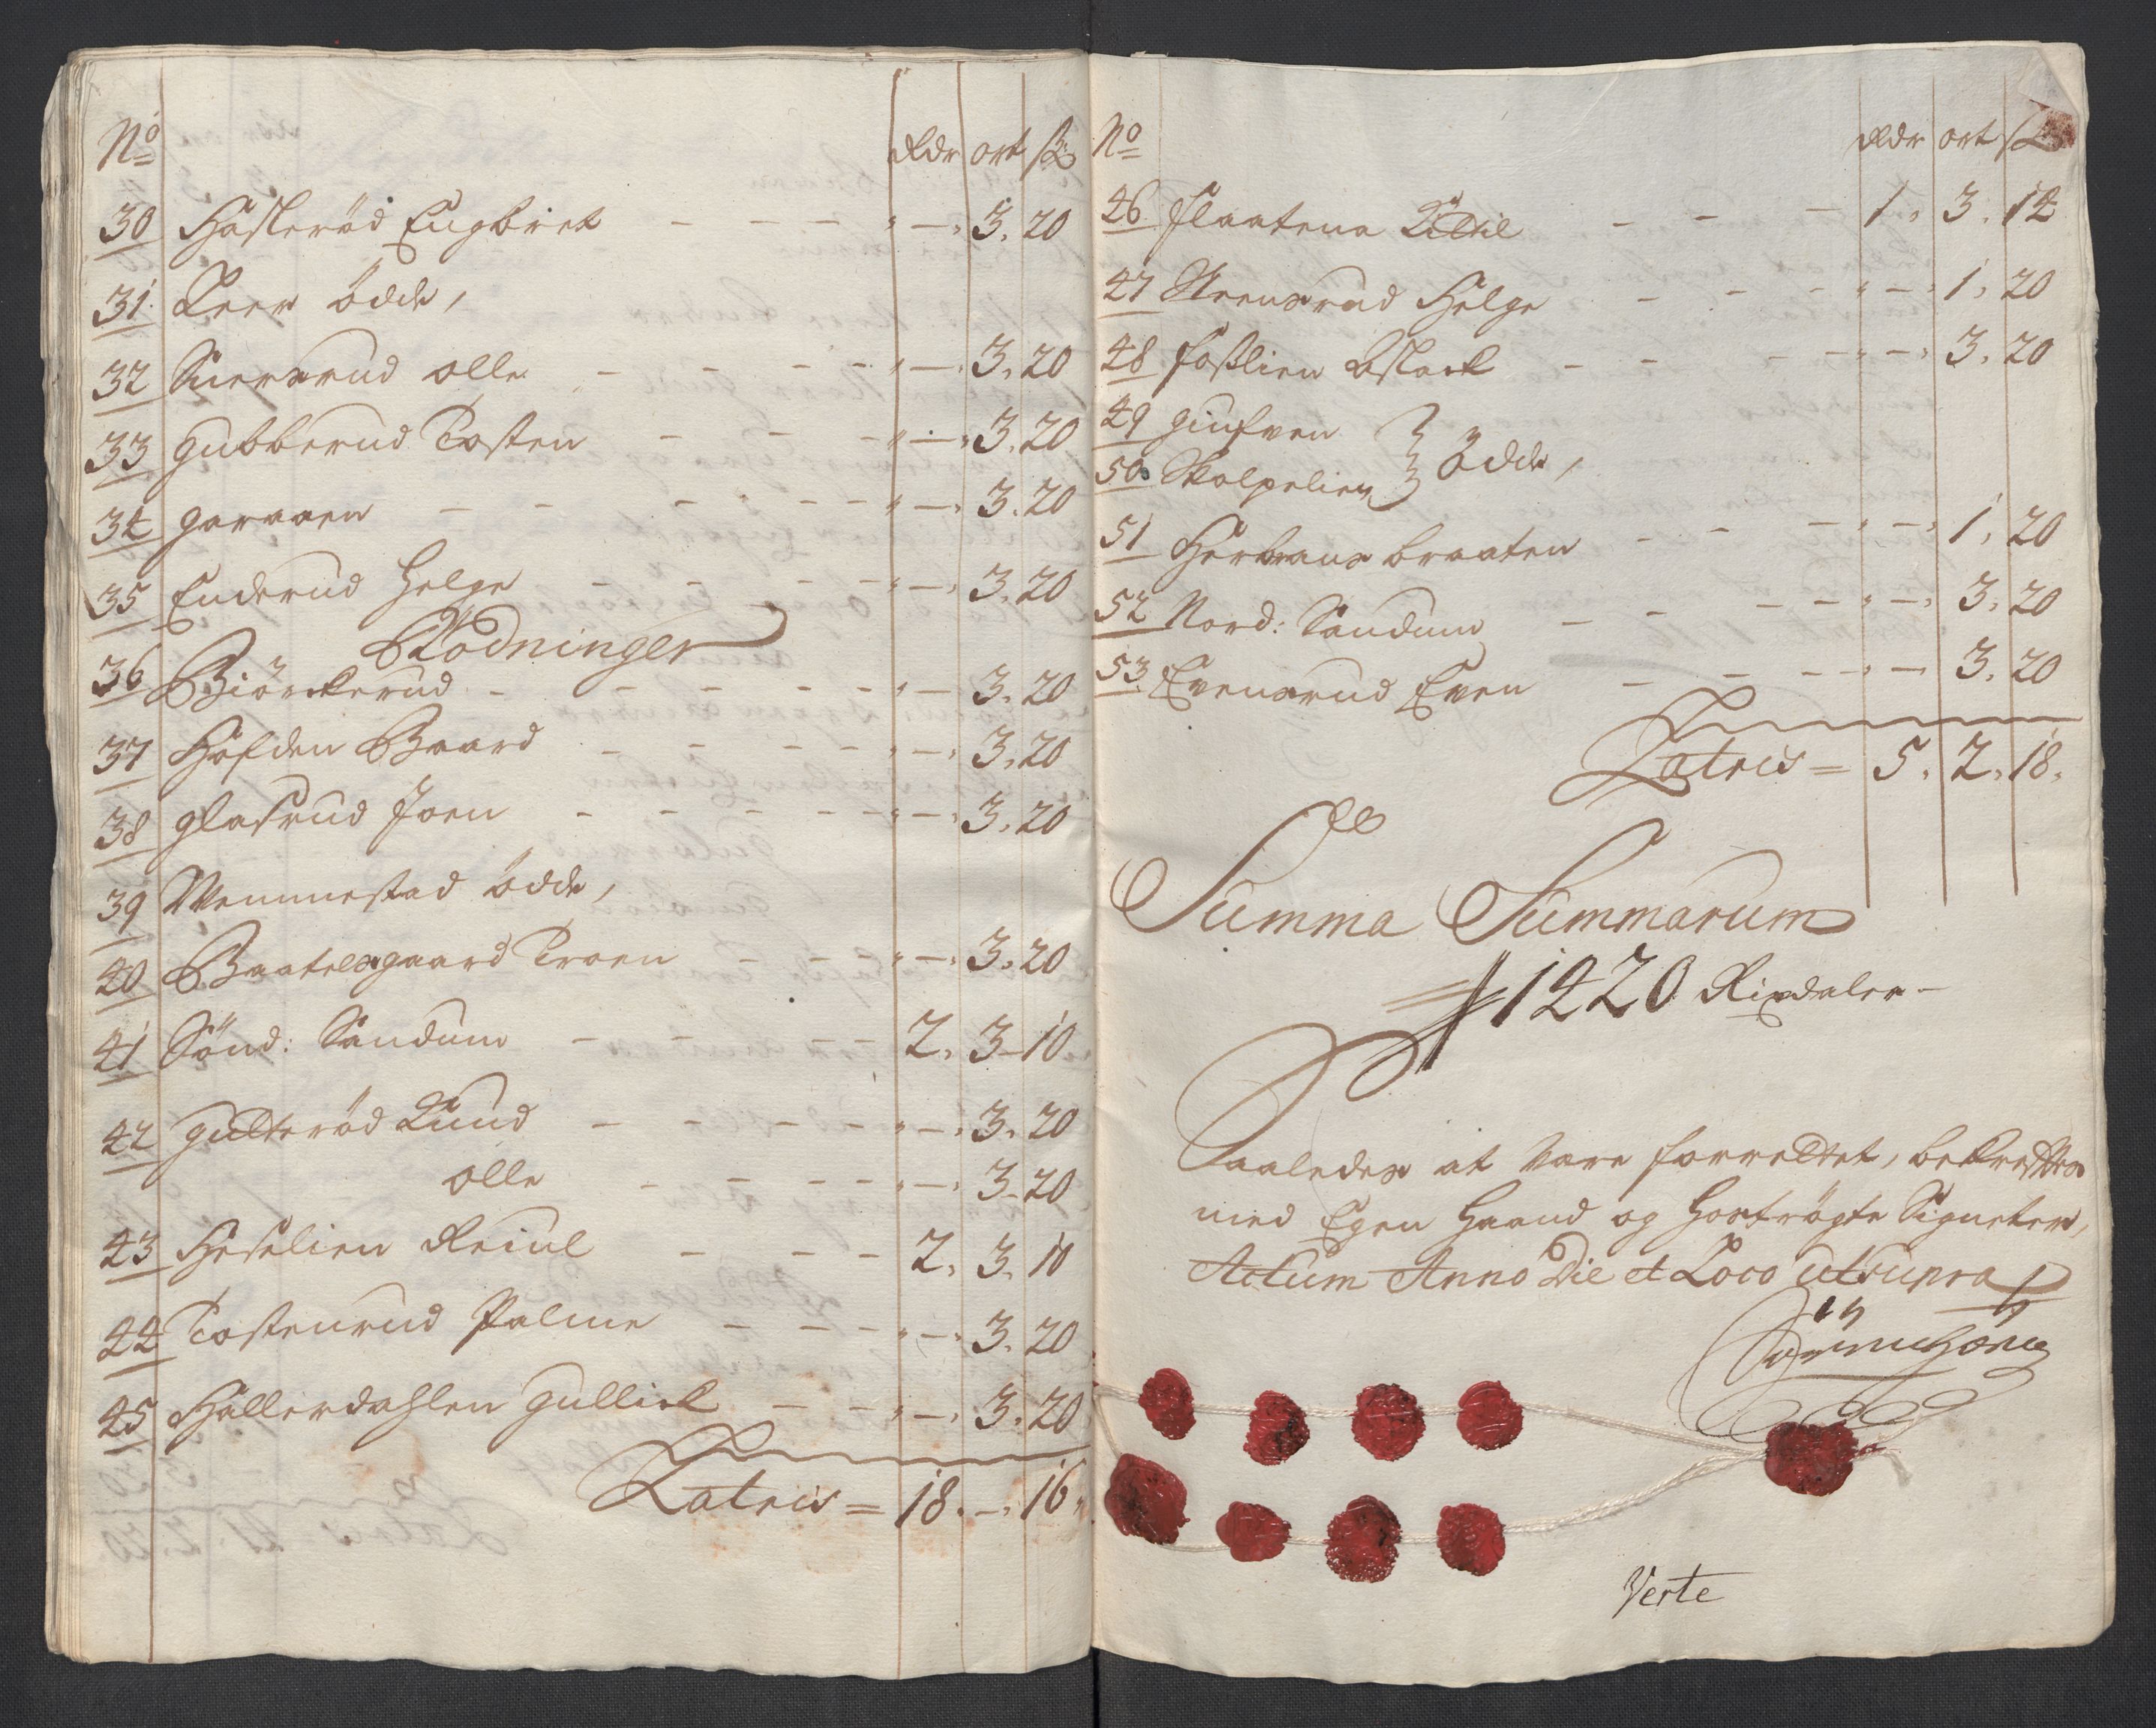 No Rdr ort ß
30 Haslerød Engbret - - - " - 3. 20
31. Leer Ödde,
32 Siversrud olle - - - - " - 3. 20
33 Gubberud Tosten - - - " - 3. 20
34 Garaaen - - - - - " - 3. 20
35 Enderud Helge - - - - " - 3. 20
Rödninger
36 Biörckerud - - - - - " - 3. 20
37 Hofden Baard - - - - " - 3. 20
38 Glasrud Joen - - - - - " - 3. 20
39 Wemmestad Ödde,
40 Baatelsgaard Troen - - - " - 3. 20
41 Sönd: Sandum - - - - 2. 3 - 10
42 Gulterød Knud - - - - " - 3. 20
olle - - - - " - 3 - 20
43 Heselien Reiul - - - 2. 3. 10
44 Tostenrud Palme - - - " - 3. 20
45 Hallerdahlen Gullick - - " - 3. 20
Latris = 18. - . 16
No Rdr ort ß
46 Flaatena Kittil - - - 1. 3. 14
47 Steensrud Helge - - - " - 1. 20
48 Foslien Aslack - - - - " - 3. 20
49 Giufven
50 Skolpelien } Ödde,
51 Herbrans braaten - - - " - 1. 20
52 Nord: Sandum - - - - " - 3. 20
53. Evensrud Even - - - - " - 3. 20
Latris = 5. 2. 18.
Summa Summarum
1420 Rixdaler -
Saaledes at være forrettet, bekræftes
med Egen Haand og hoströgte Signeter,
Actum Anno Die et Loco utsupra
Verte